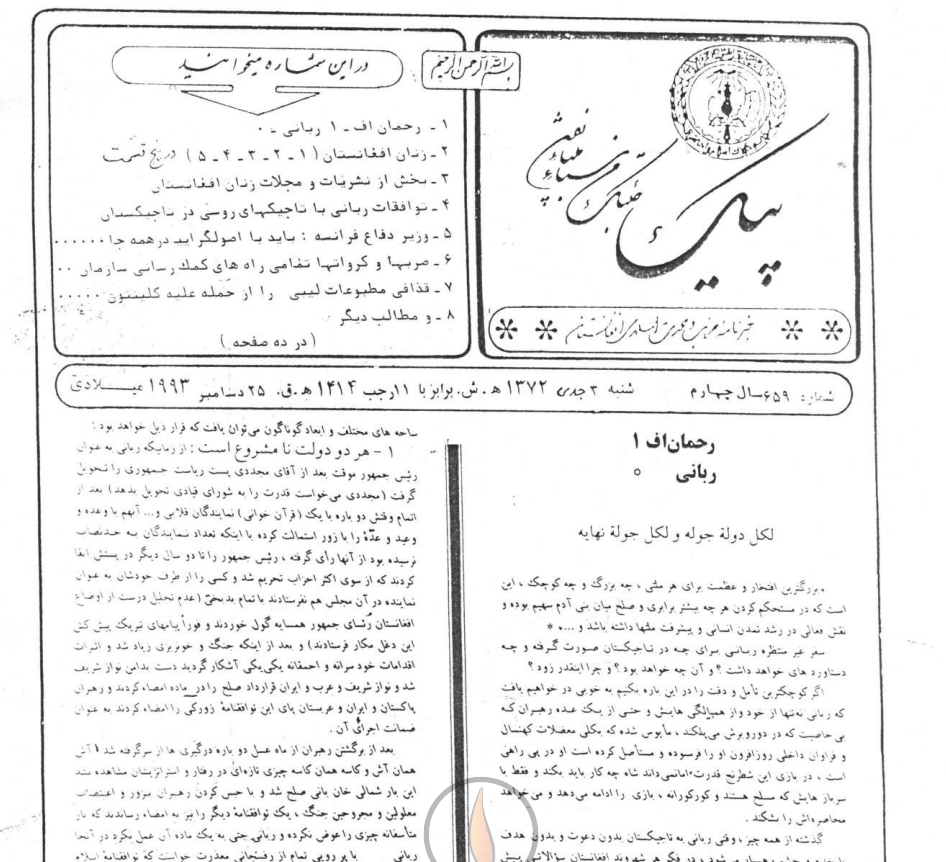 بسم الله الرحمن الرحیم
پیک
خبرنامه
شماره ۶۵۹ سال چهارم شنبه ۳ جدی ۱۳۷۲ ه.ش. برابر با ۱۱ رجب ۱۴۱۴ ه.ق. ۲۵ دسامبر ۱۹۹۳ میلادی
در این شماره میخوانید
۱ - رحمان اف - ۱ ربانی - ۰
۲ - زنان افغانستان (۱ - ۲ - ۳ - ۴ - ۵) در پنج قسمت
۳ - بخش از نشریات و مجلات زنان افغانستان
۴ - توافقات ربانی با تاجیکهای روسی در تاجیکستان
۵ - وزیر دفاع فرانسه : باید با اصولگراید در همه جا ......
۶ - صربها و کرواتها تمامی راه های کمک رسانی سازمان ..
۷ - قذافی مطبوعات لیبی را از حمله علیه کلینتون .....
۸ - و مطالب دیگر
( در ده صفحه )
رحمان‌اف ۱
ربانی ۰
لکل دولة جوله و لکل جولة نهایه
بزرگترین افتخار و عظمت برای هر ملتی ، چه بزرگ و چه کوچک ، این
است که در مستحکم کردن هر چه بیشتر برابری و صلح میان بنی آدم سهیم بوده و
نقش فعالی در رشد تمدن انسانی و پیشرفت ملتها داشته باشد و ... *
سفر غیر منتظره ربانی برای چه در تاجیکستان صورت گرفته و چه
دستاورد های خواهد داشت ؟ و آن چه خواهد بود ؟ و چرا اینقدر زود ؟
اگر کوچکترین تأمل و دقت را در این باره بکنیم به خوبی در خواهیم یافت
که ربانی نه‌تنها از خود و از همپالگی هایش و حتی از یک عده رهبران که
بی حاصیت که در دوروبرش می‌پلکند ، مأیوس شده که بکلی معضلات کهنسال
و فراوان داخلی روزافزون او را فرسوده و مستأصل کرده است او در پی راهی
است ، در بازی این شطرنج قدرت‌امانمی‌داند شاه چه کار باید بکند و فقط با
سرباز هایش که مسلح هستند و کورکورانه ، بازی را ادامه می‌دهد و می‌خواهد
محاصره‌اش را بشکند .
گذشته از همه چیز ، وقتی ربانی به تاجیکستان بدون دعوت و بدون هدف
می شود ، در فکر هر شهروند افغانستان سؤالاتی پیش
ساحه های مختلف و ابعاد گوناگون می‌توان یافت که قرار ذیل خواهد بود :
۱ - هر دو دولت نا مشروع است : از زمانیکه ربانی به عنوان
رئیس جمهور موقت بعد از آقای مجددی پست ریاست جمهوری را تحویل
گرفت ( مجددی می‌خواست قدرت را به شورای قیادی تحویل بدهد ) بعد از
اتمام وقتش دو باره با یک ( قرآن خوانی ) نمایندگان قلابی و... آنهم با وعده و
وعید و عدّهٔ را با زور استمالت کرده با اینکه تعداد نمایندگان به حدنصاب
نرسیده بود از آنها رأی گرفته ، رئیس جمهور را تا دو سال دیگر در پستش ابقا
کردند که از سوی اکثر احزاب تحریم شد و کسی را از طرف خودشان به عنوان
نماینده در آن مجلس هم نفرستادند با تمام بدبختی ( عدم تحلیل درست از اوضاع
افغانستان رُسای جمهور همسایه گول خوردند و فوراً پیامهای تبریک پیش کش
این دغل مکار فرستادند ) و بعد از اینکه جنگ و خونریزی زیاد شد و اثرات
اقدامات خود سرانه و احمقانه یکی‌یکی آشکار گردید دست بدامن نواز شریف
شد و نواز شریف و عرب و ایران قرارداد صلح را در ماده امضاء کردند و رهبران
پاکستان و ایران و عربستان پای این توافقنامهٔ زورکی را امضاء کردند به عنوان
ضمانت اجرای آن .
بعد از برگشتن رهبران از ماه عسل دو باره درگیری ها از سرگرفته شد ! آش
همان آش و کاسه همان کاسه چیزی تازه‌ای در رفتار و استراتژیشان مشاهده نشد
این بار شمالی خان بانی صلح شد و با حبس کردن رهبران مزور و اعتصاب
معلولین و مجروحین جنگ ، یک توافقنامهٔ دیگر را نیز به امضاء رساندند که باز
متأسفانه چیزی را عوض نکرده و ربانی حتی به یک ماده آن عمل نکرد در آنجا
ربانی با پر رویی تمام از رفسنجانی معذرت خواست که توافقنامهٔ